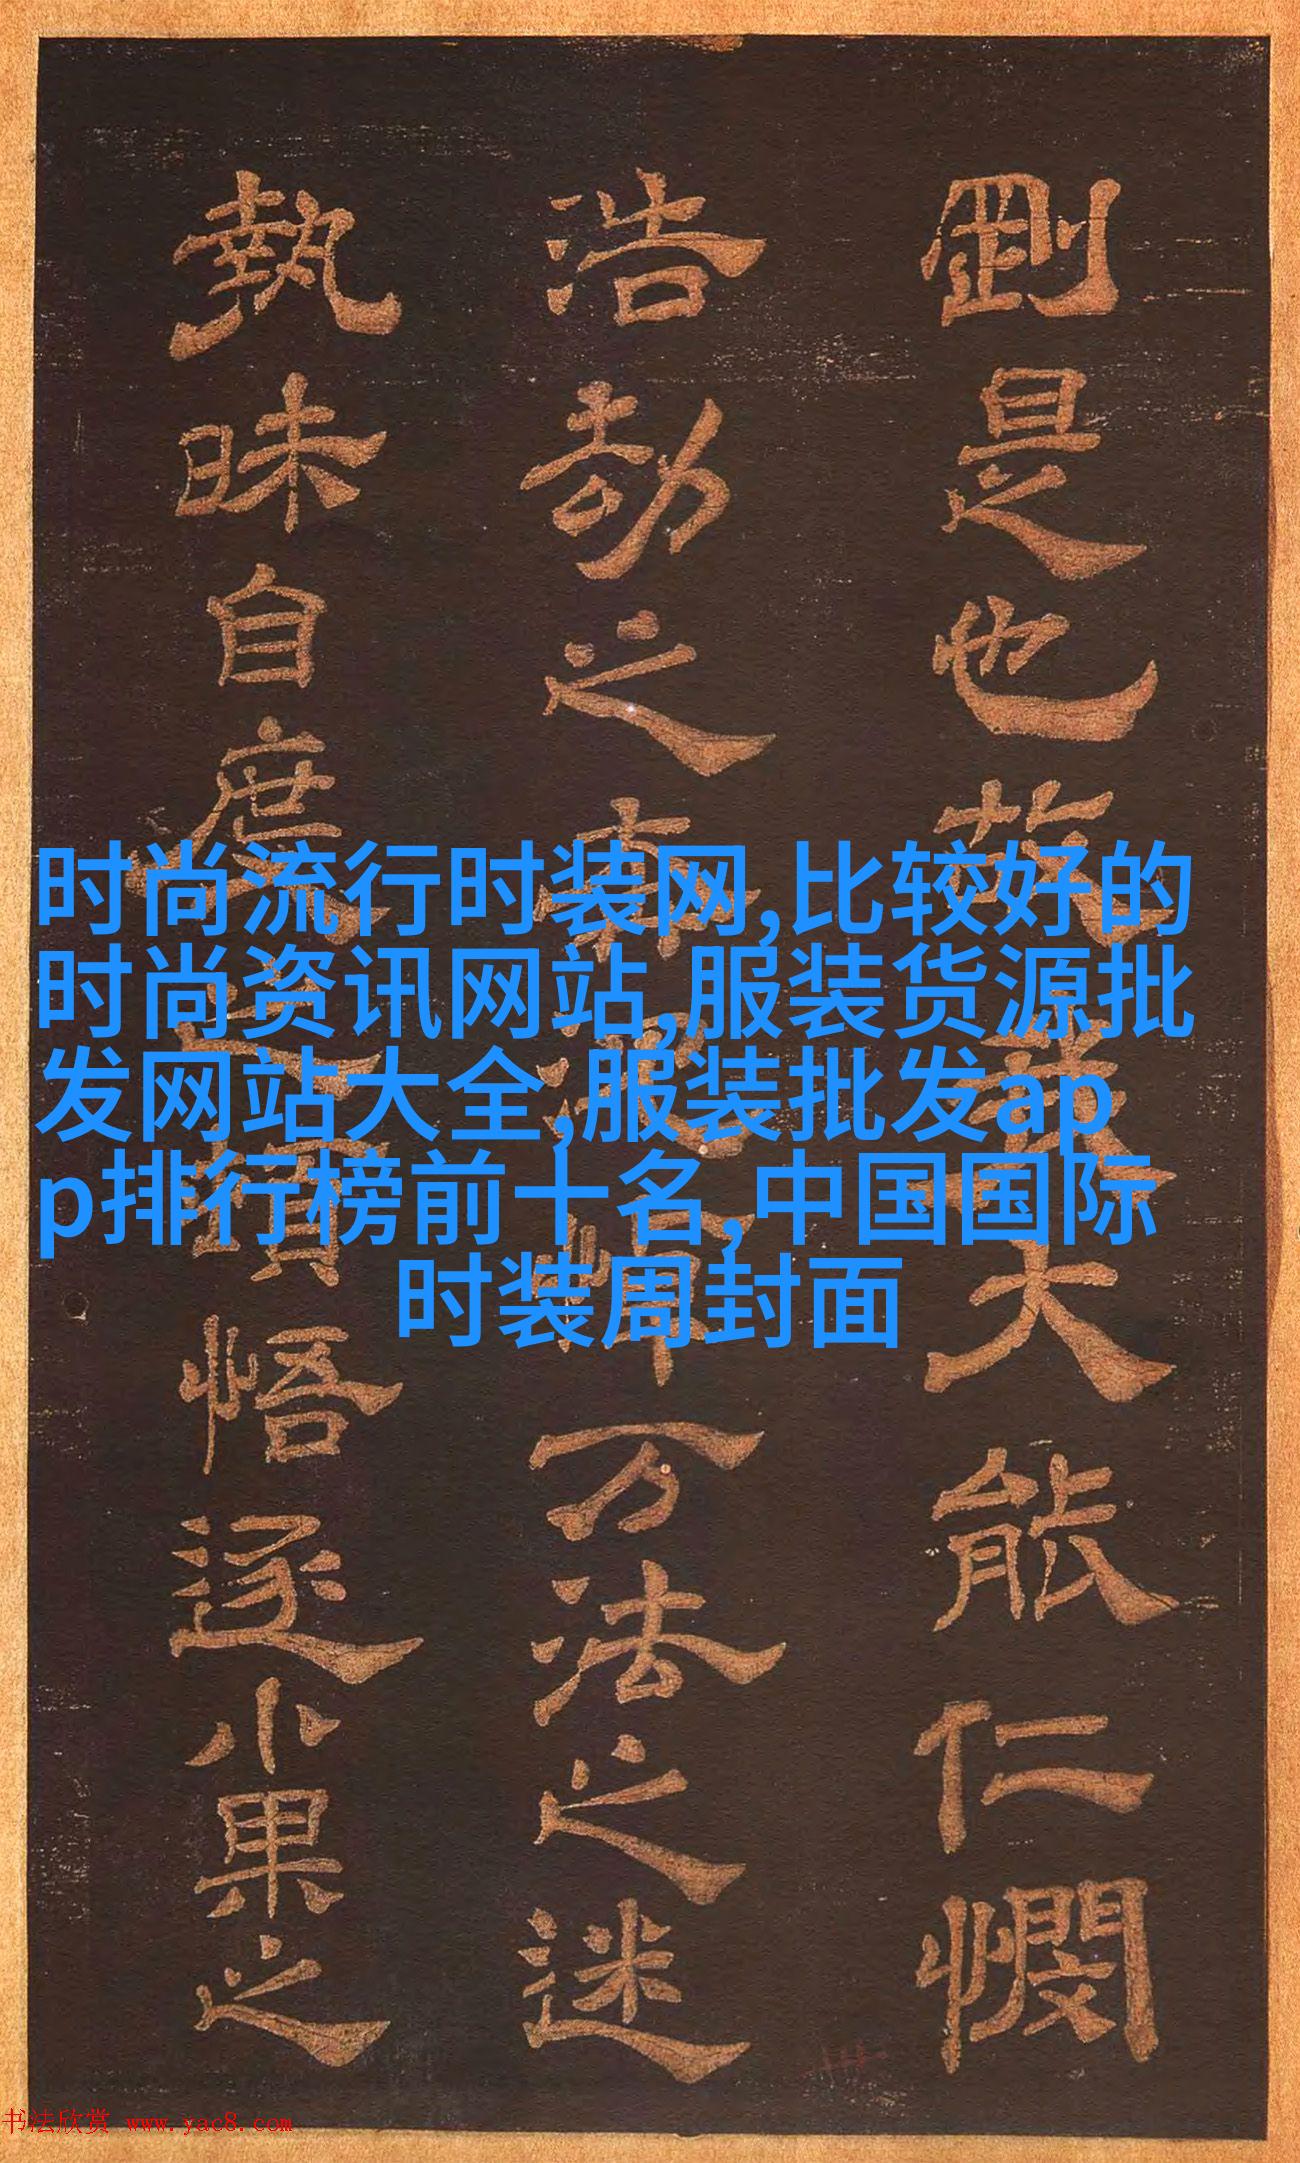 剛是也故大能仁憫
浩劫之万法之迷
執昧自悟遂小果之
时尚流行时装网,比较好的
时尚资讯网站,服装货源批
发网站大全,服装批发ap
p排行榜前十名,中国国际
时装周封面
书法欣赏 www.yac8.com